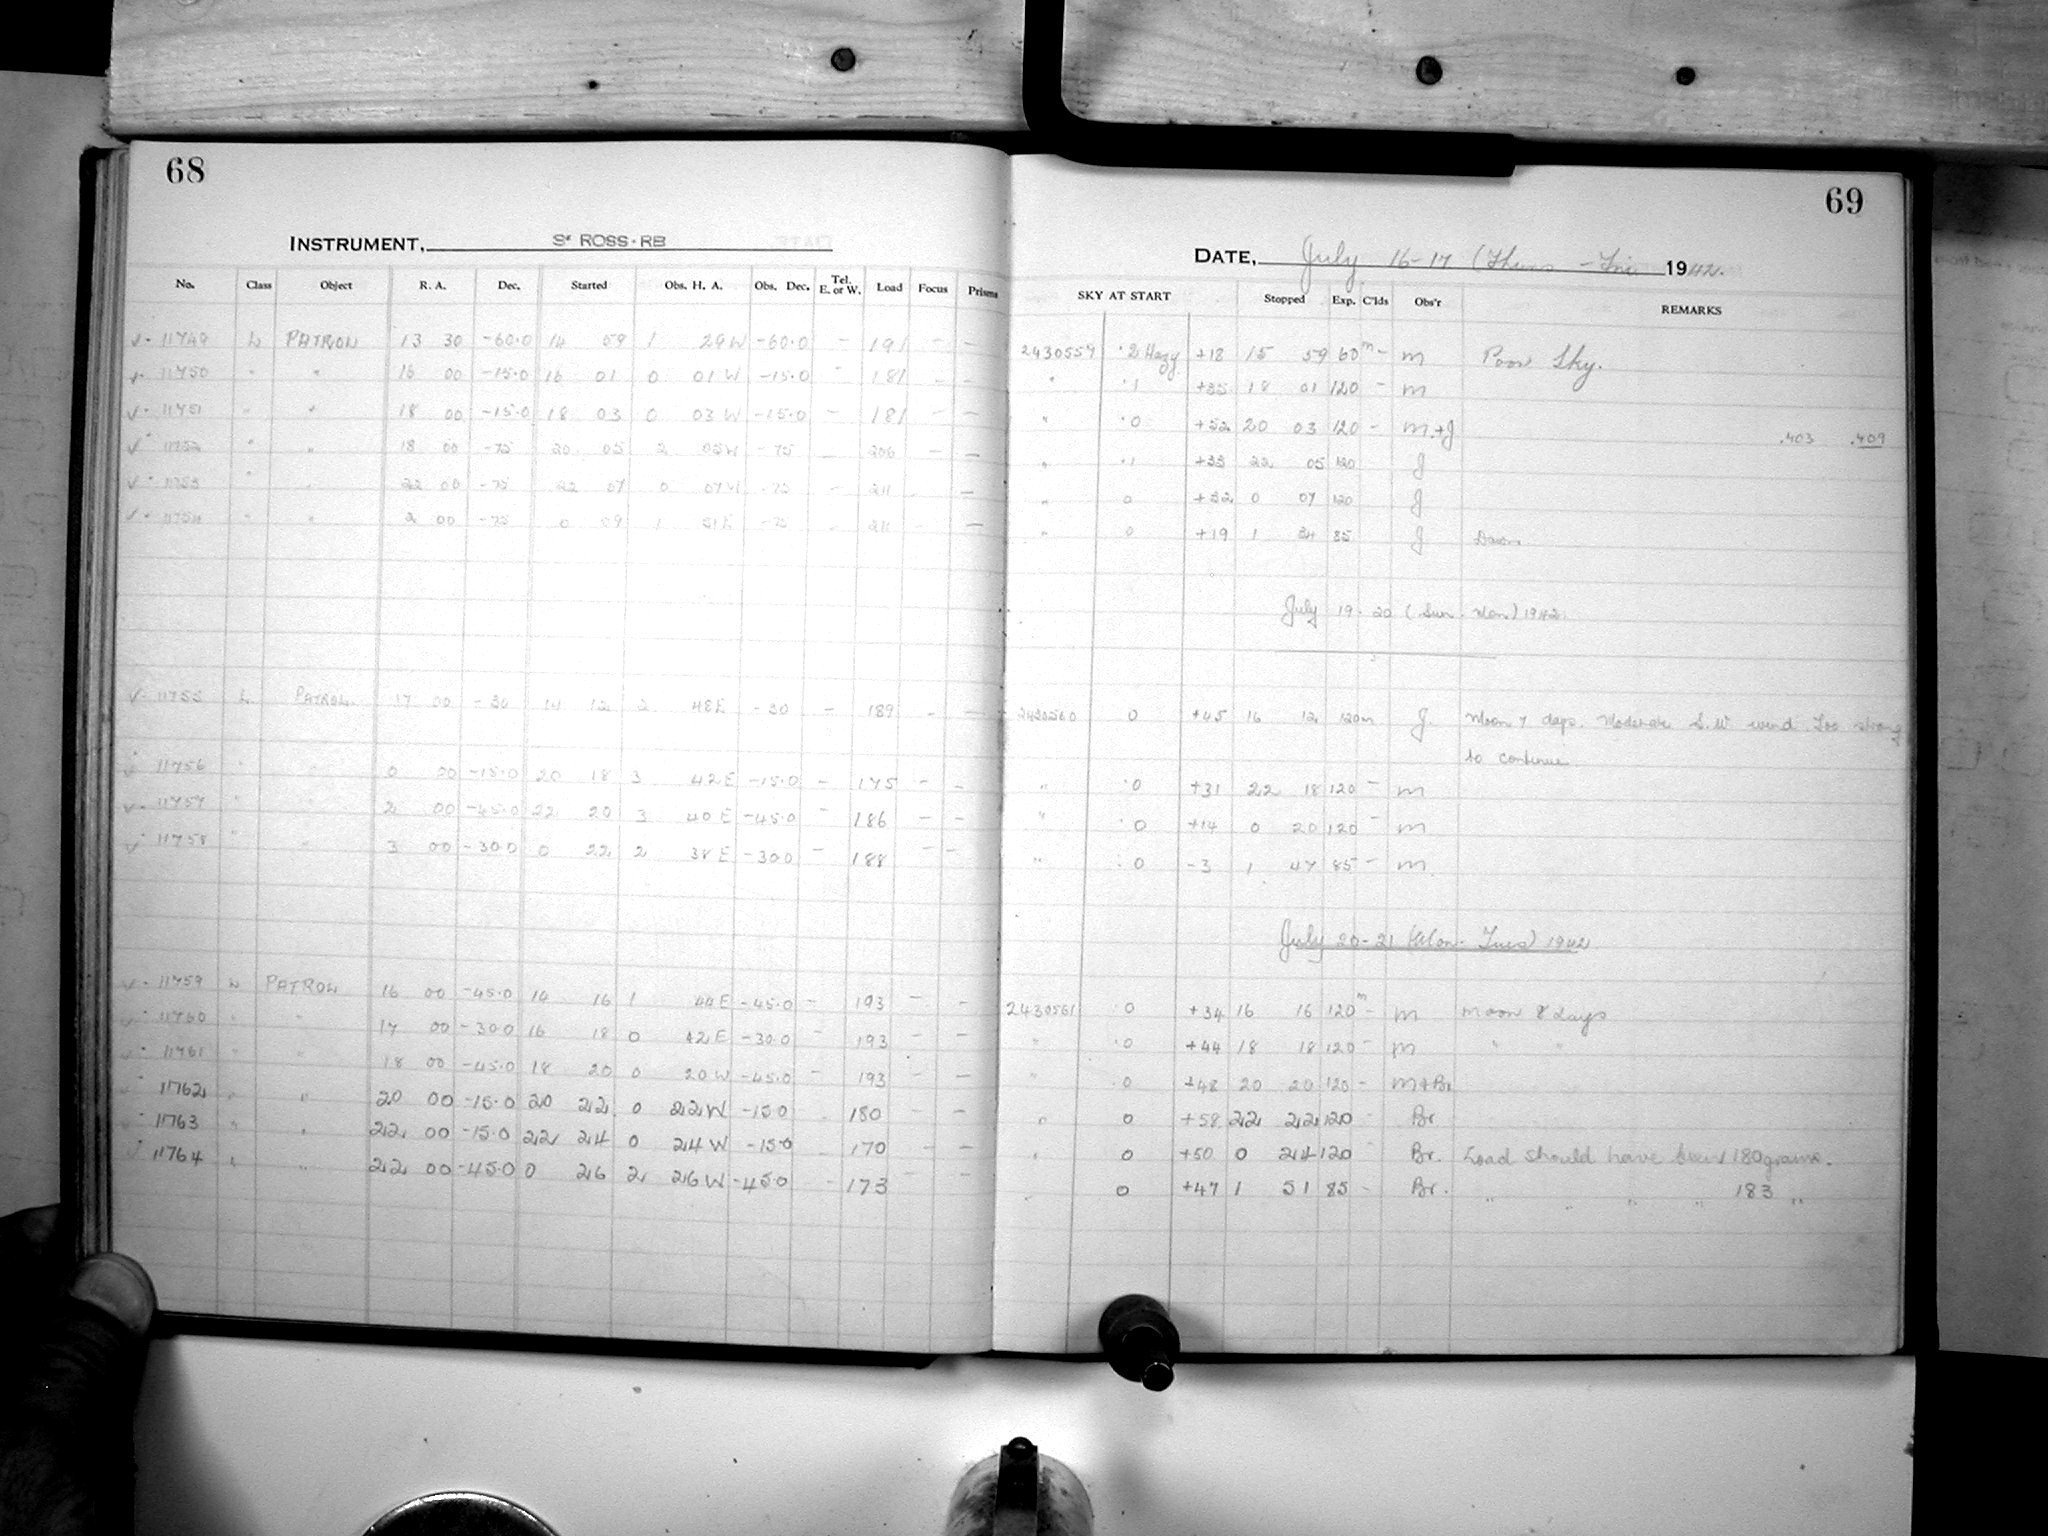 68
INSTRUMENT, Sr ROSS-RB
No. Class Object R. A. Dec. Started Obs. H. A. Obs. Dec. Tel. E. or W. Load Focus Prisms
✓ - 11749 L PATROL 13 30 -60.0 14 59 1 29 W -60.0 - 191 - -
11750 " " 16 00 -15.0 16 01 0 01 W -15.0 - 181 - -
✓ - 11751 " " 18 00 -15.0 18 03 0 03 W -15.0 - 181 - -
✓ - 11752 " " 18 00 -75 20 05 2 05 W -75 - 206 - -
✓ - 11753 " " 22 00 -75 22 07 0 07 W -75 - 211 -
✓ - 11754 " " 2 00 -75 0 09 1 51 E -75 211 - -
✓ - 11755 L PATROL 17 00 -30 14 12 2 48 E -30 - 189 - -
11756 " 0 00 -15.0 20 18 3 42 E -15.0 - 175 - -
✓ - 11757 " " 2 00 -45.0 22 20 3 40 E -45.0 - 186 - -
✓ - 11758 " " 3 00 -30.0 0 22 2 38 E -30.0 - 188 - -
✓ - 11759 L PATROL 16 00 -45.0 14 16 1 44 E -45.0 - 193 - -
✓ - 11760 " " 17 00 -30.0 16 18 0 42 E -30.0 - 193 - -
✓ - 11761 " " 18 00 -45.0 18 20 0 20 W -45.0 - 193 - -
11762 " " 20 00 -15.0 20 22 0 22 W -15.0 180 - -
11763 " " 22 00 -15.0 22 24 0 24 W -15.0 170 - -
11764 " " 22 00 -45.0 0 26 2 26 W -45.0 - 173 - -
69
DATE, July 16-17 (Thurs - Fri 1942.
SKY AT START Stopped Exp. C'lds Obs'r REMARKS
2430557 .2 Hazy +18 15 59 60m - m Poor Sky.
" .1 +35 18 01 120 - m
" .0 +52 20 03 120 - m+J .403 .409
" .1 +33 22 05 120 J
" 0 +32 0 07 120 J
" 0 +19 1 34 85 J Dawn
July 19-20 (Sun - Mon) 1942.
2430560 0 +45 16 12 120m J. Moon 7 days. Moderate S.W wind. Too strong
to continue
" .0 +31 22 18 120 - m
" .0 +14 0 20 120 - m
" .0 -3 1 47 85 - m
July 20-21 (Mon - Tues) 1942
2430561 .0 +34 16 16 120m - m Moon 8 days
" .0 +44 18 18 120 - m " "
" .0 +48 20 20 120 - m+Br
" 0 +58 22 22 120 - Br
" 0 +50 0 24 120 - Br. Load should have been 180 grams.
" 0 +47 1 51 85 - Br. " " " " 183 "